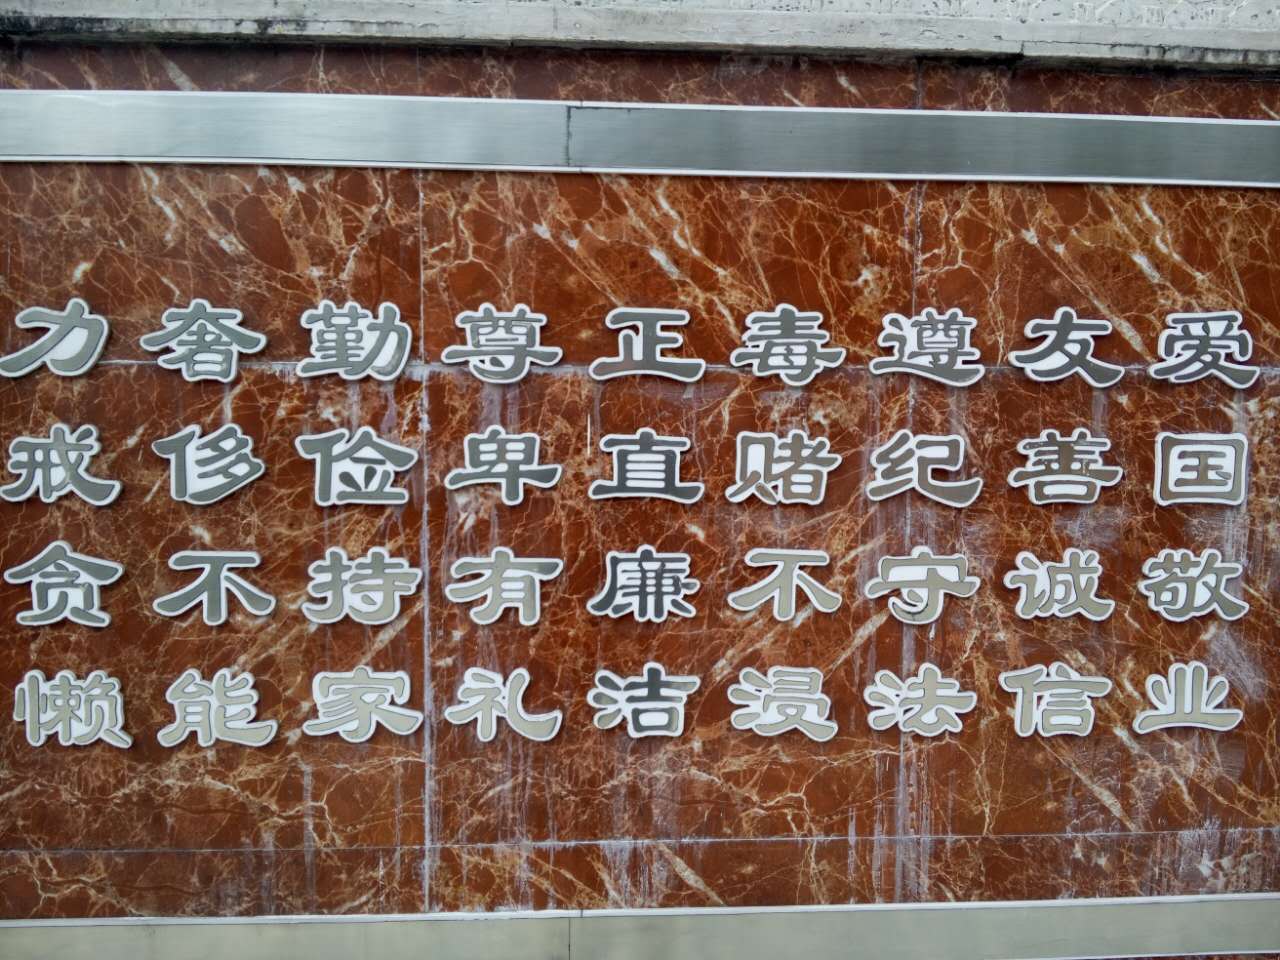 爱国敬业
友善诚信
遵纪守法
毒赌不浸
正直廉洁
尊卑有礼
勤俭持家
奢侈不能
力戒贪懒